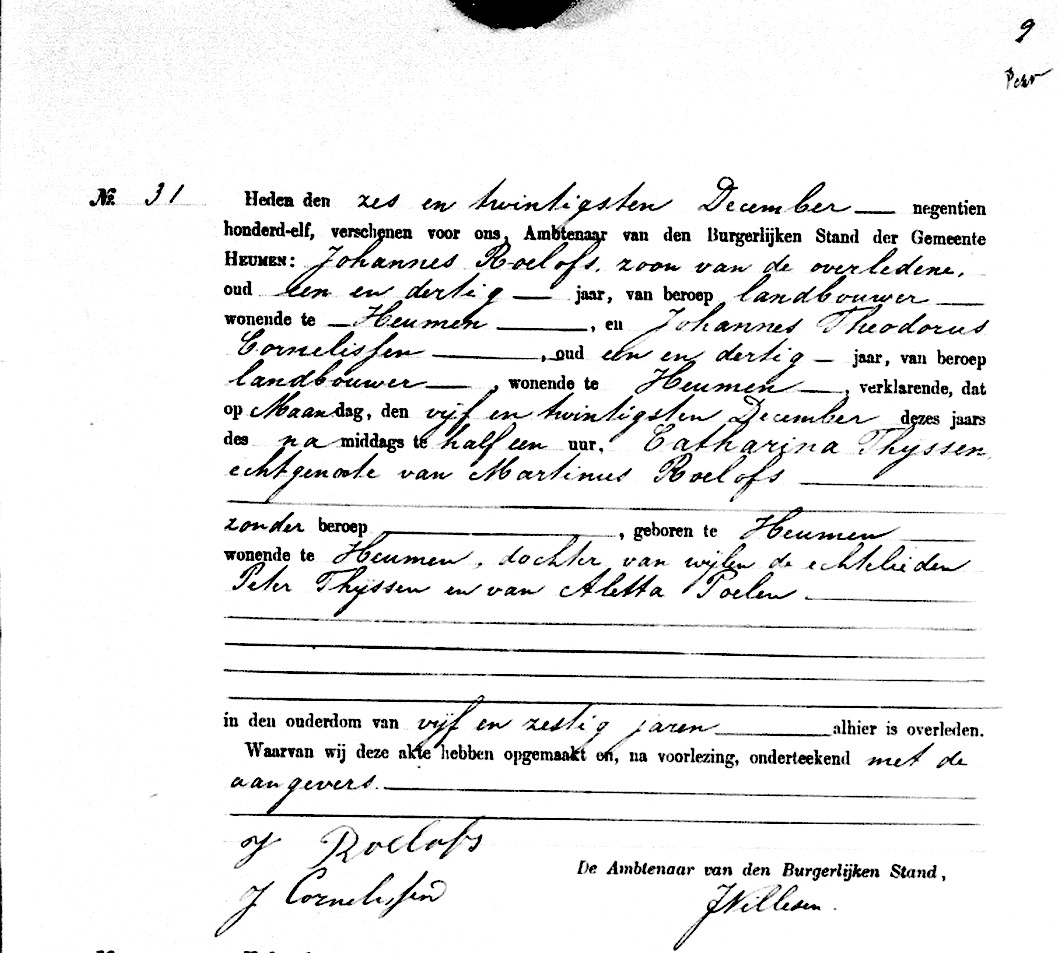 9
№. 31 Heden den zes en twintigsten December negentien
honderd-elf, verschenen voor ons, Ambtenaar van den Burgerlijken Stand der Gemeente
HEUMEN: Johannes Roelofs, zoon van de overledene,
oud een en dertig jaar, van beroep landbouwer
wonende te Heumen, en Johannes Theodorus
Cornelissen, oud een en dertig jaar, van beroep
landbouwer, wonende te Heumen, verklarende, dat
op Maandag, den vijf en twintigsten December dezes jaars
des na middags te half een uur, Catharina Thijssen,
echtgenoote van Martinus Roelofs
zonder beroep, geboren te Heumen
wonende te Heumen, dochter van wijlen de echtelieden
Peter Thijssen en van Aletta Poelen
in den ouderdom van vijf en zestig jaren alhier is overleden.
Waarvan wij deze akte hebben opgemaakt en, na voorlezing, onderteekend met de
aangevers.
J Roelofs
De Ambtenaar van den Burgerlijken Stand,
J Cornelissen